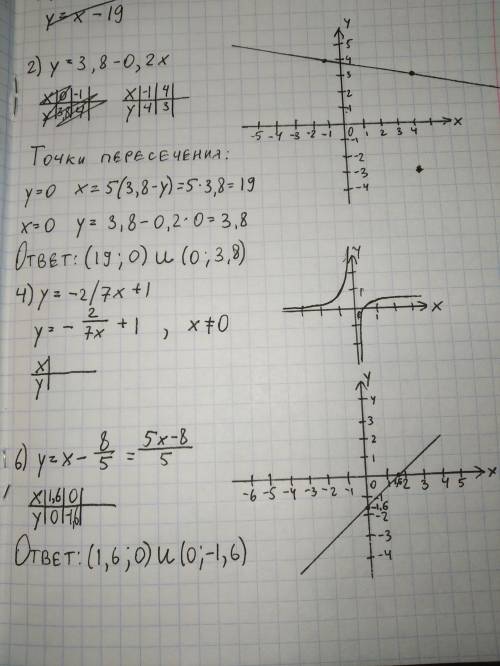 y = x - 19
2) y = 3,8 - 0,2x
x 0 -1
y 3,8 4
x -1 4
y 4 3
Точки пересечения:
y=0 x = 5(3,8-y)=5·3,8=19
x=0 y = 3,8-0,2·0=3,8
Ответ: (19;0) и (0;3,8)
4) y = -2/7x+1
y = - 2/7x + 1 , x≠0
x
y
6) y = x - 8/5 = 5x-8/5
x 1,6 0
y 0 -1,6
Ответ: (1,6;0) и (0;-1,6)
y
5
4
3
2
1
-5 -4 -3 -2 -1 0 1 2 3 4 x
-1
-2
-3
-4
y
1
0 1 x
y
4
3
2
1
-6 -5 -4 -3 -2 -1 0 1 1,6 2 3 4 5 x
-1
-1,6
-2
-3
-4